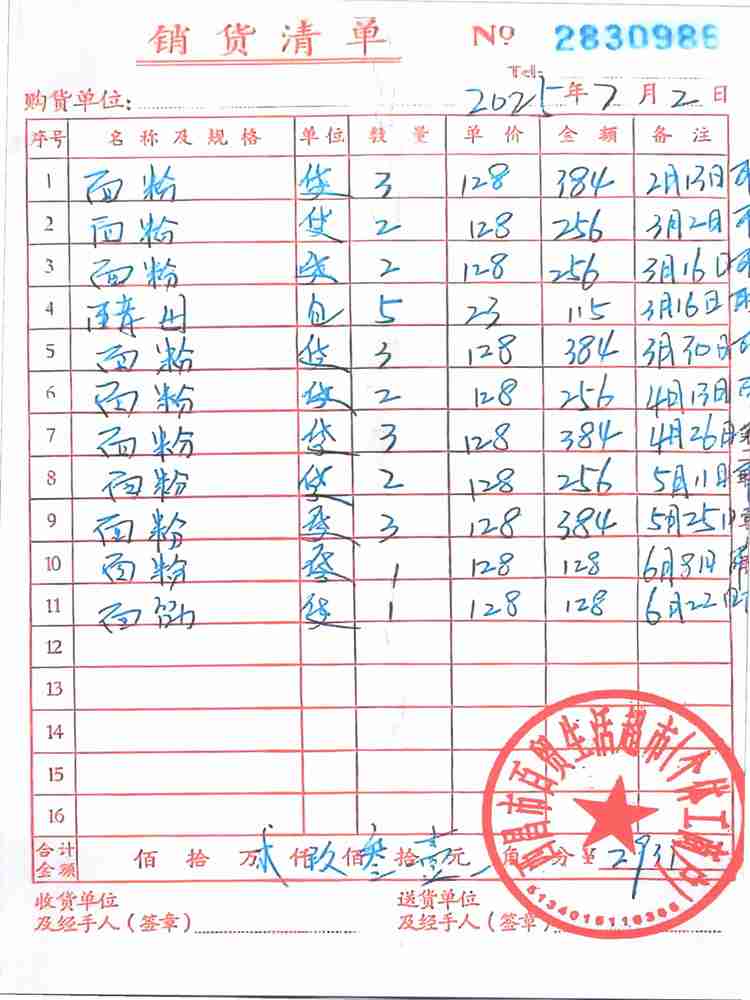 销货清单 № 2830986
Tel:
购货单位: 2025年7月2日
序号 名称及规格 单位 数量 单价 金额 备注
1 面粉 袋 3 128 384 2月13日
2 面粉 袋 2 128 256 3月2日
3 面粉 袋 2 128 256 3月16日
4 包 5 23 115 3月16日
5 面粉 袋 3 128 384 3月30日
6 面粉 袋 2 128 256 4月13日
7 面粉 袋 3 128 384 4月26日
8 面粉 袋 2 128 256 5月11日
9 面粉 袋 3 128 384 5月25日
10 面粉 袋 1 128 128 6月8日
11 面粉 袋 1 128 128 6月22日
12
13
14
15
16
合计金额 佰 拾 万 贰仟 玖佰 叁拾 壹元 角 分 ¥ 2931
收货单位 送货单位
及经手人(签章) 及经手人(签章)
西昌市百贸生活超市(个体工商户)